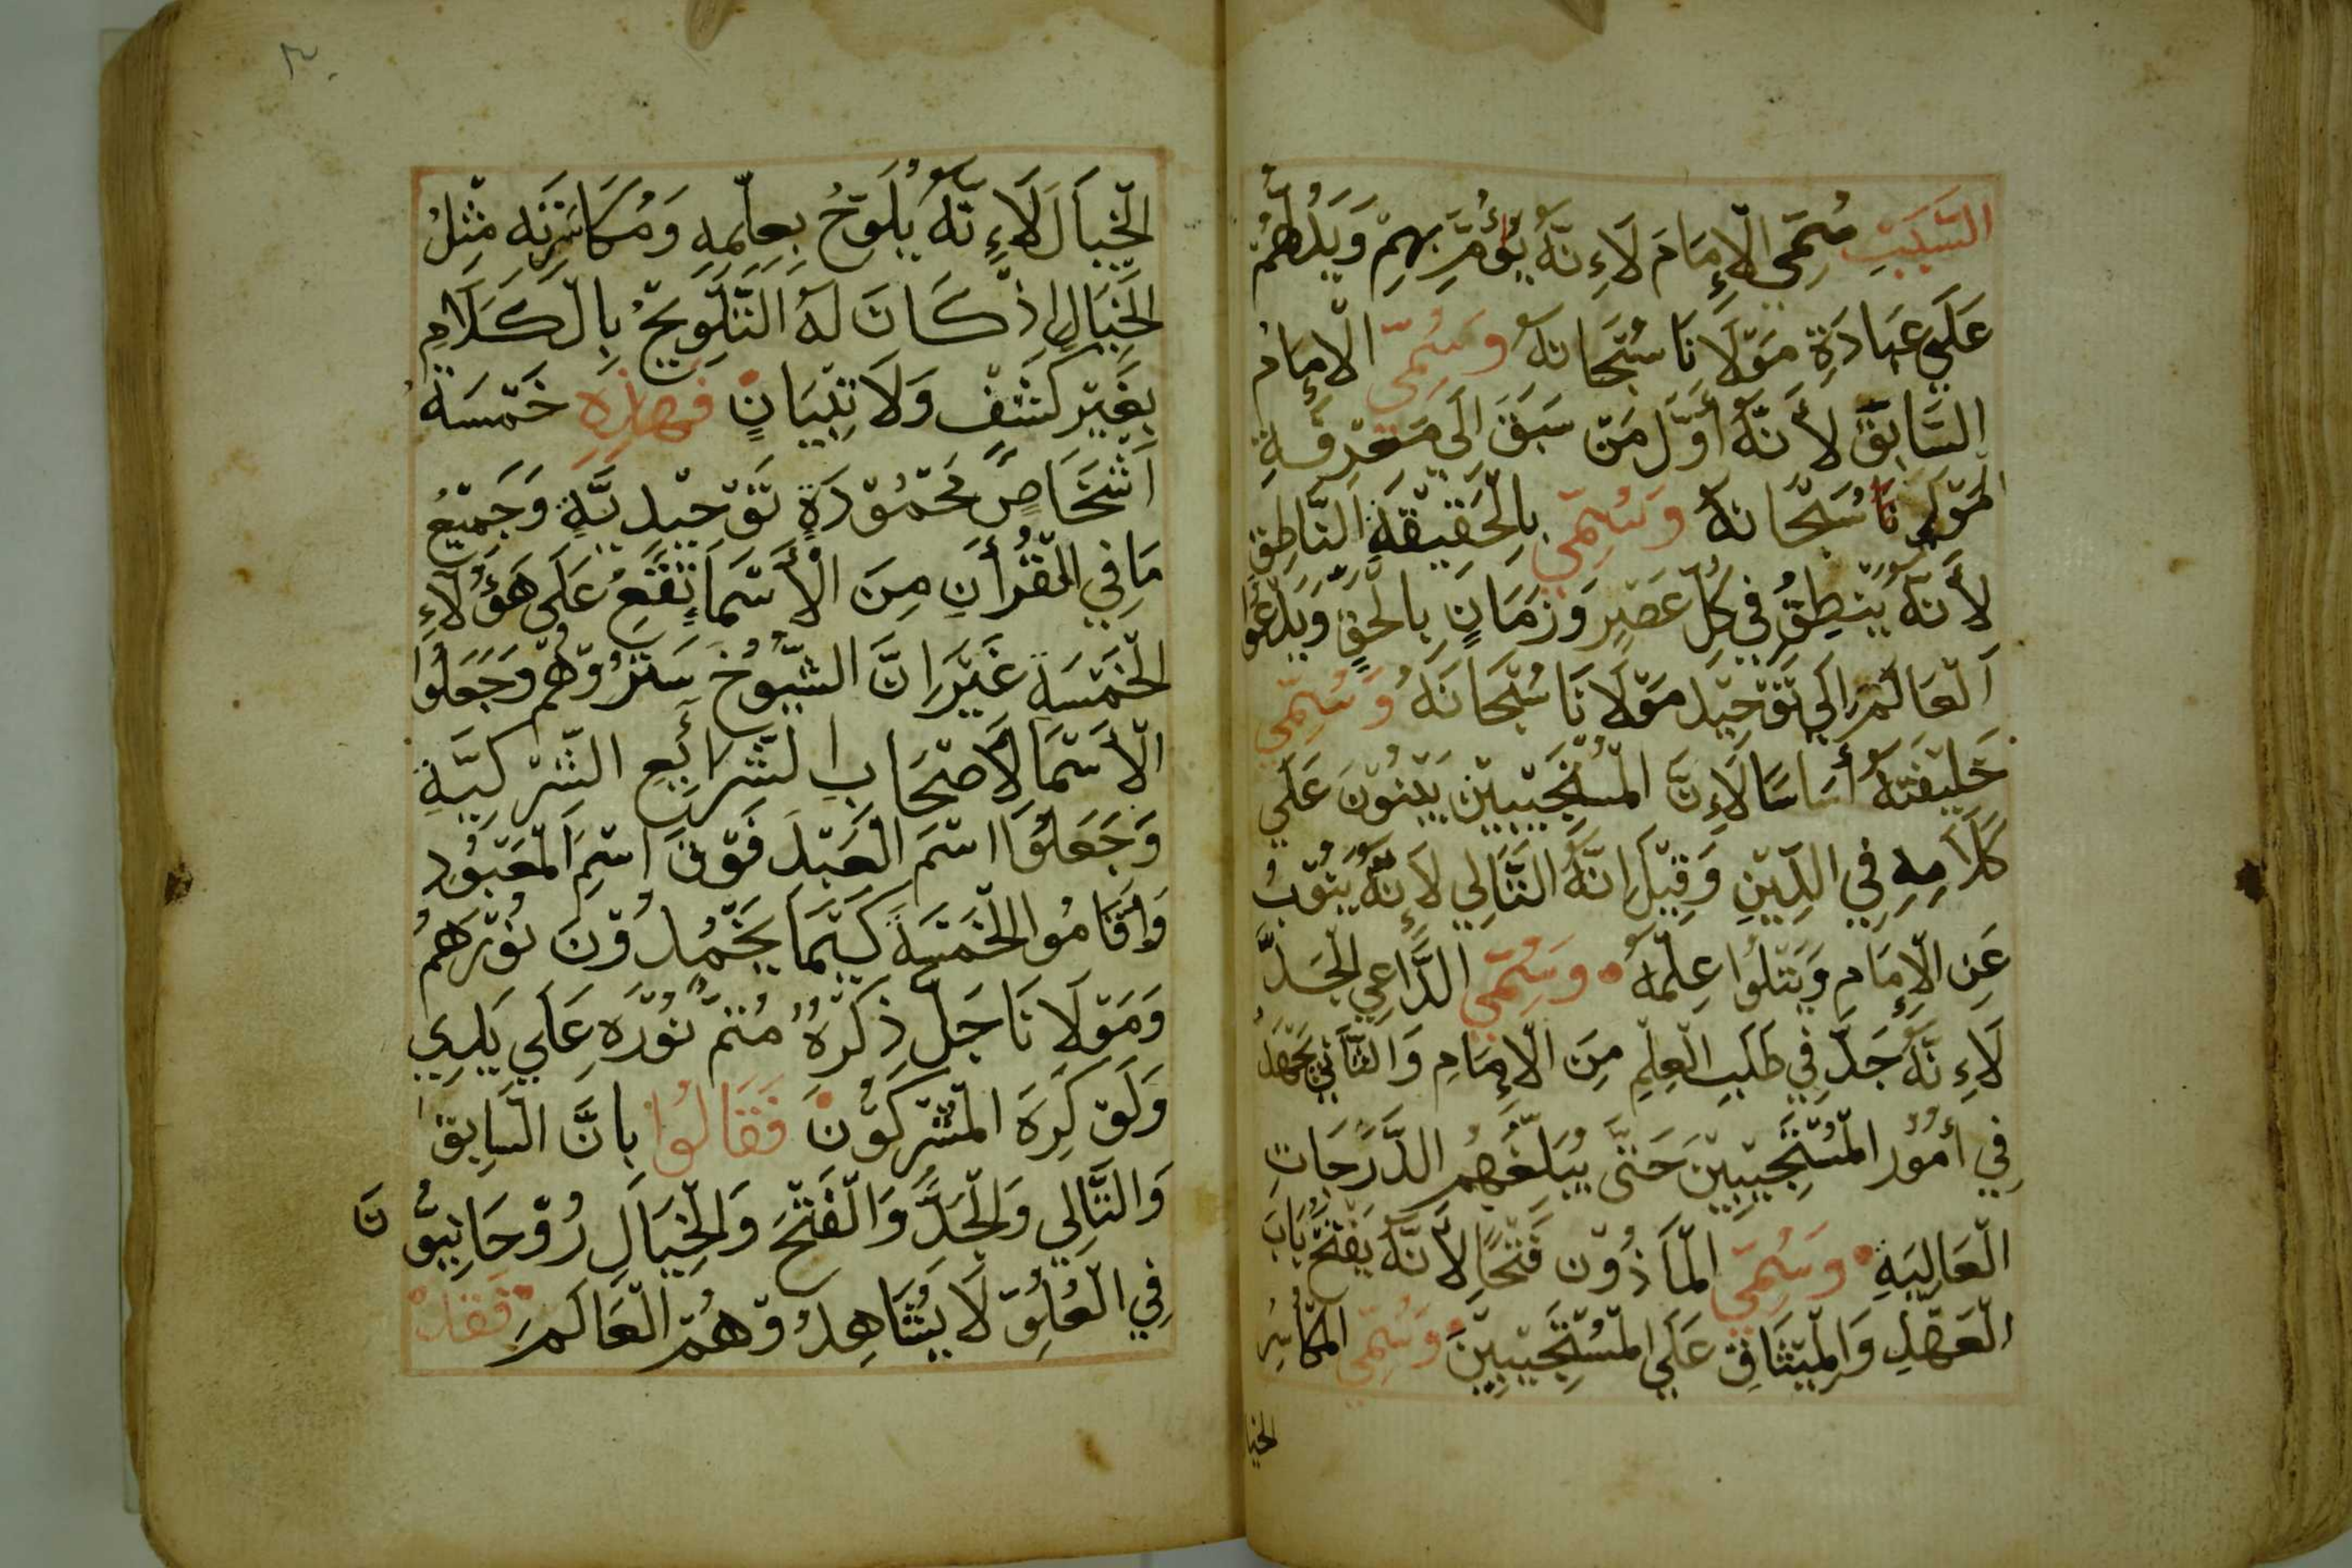 السَّبَبِ سُمِّيَ الْإِمَامَ لَاءِنَّهُ يُؤَمُّ بِهِمْ وَيَدُلُّهُمْ
عَلَي عِبَادَةِ مَوْلَانَا سُبْحَانَهُ وَسُمِّيَ الْإِمَامُ
السَّابِقَ لأَنَّهُ أَوَّلُ مَنْ سَبَقَ اَلَي مَعْرِفَةِ
مَوْلَانَا سُبْحَانَهُ وَسُمِّيَ بِالْحَقِيْقَةِ النَّاطِقِ
لأَنَّهُ يَنْطِقُ فِي كُلِّ عَصْرٍ وَزَمَانٍ بِالْحَقِّ وَيَدْعُوا
اَلْعَالَمَ اِلَي تَوْحِيْدِ مَوْلَانَا سُبْحَانَهُ وَسُمِّيَ
خَلِيْفَتَهُ أَسَاسًا لَاءِنَّ الْمُسْتَجِيْبِيْنَ يَبْنُوْنَ عَلَي
كَلَامِهِ فِي الدِّيْنِ وَقِيْلَ اِنَّهُ التَّالِي لَاءِنَّهُ يَنُوْبُ
عَنِ الْإِمَامِ وَيَتْلُوا عِلْمَهُ وَسُمِّيَ الدَّاعِي الْجَدَّ
لَاءِنَّهُ جَدَّ فِي طَلَبِ الْعِلْمِ مِنَ الْإِمَامِ وَالثَّانِي يَجْهَدُ
فِي أُمُوْرِ الْمُسْتَجِيْبِيْنَ حَتَّى يُبَلِّغَهُمْ الدَّرَجَاتِ
الْعَالِيَةِ وَسُمِّيَ الْمَاَذُوْنَ فَتْحًا لأَنَّهُ يَفْتَحُ بَابَ
الْعَهْدِ وَالْمِيْثَاقِ عَلَي الْمُسْتَجِيْبِيْنَ وَسُمِّيَ الْمُكَاسِرُ
الخيا
الْخَيَالَ لَاءِنَّهُ يُلَوِّحُ بِعِلْمِهِ وَمُكَاسَرَتِهِ مِثْلُ
الْخَيَالِ اِذْ كَانَ لَهُ التَّلْوِيْحُ بِالْكَلَامِ
بِغَيْرِ كَشْفٍ وَلَا تِبْيَانٍ فَهٰذِهِ خَمْسَةُ
اَشْخَاصٍ مَحْمُوْدَةٍ تَوْحِيْدِيَّةٍ وَجَمِيْعُ
مَا فِي الْقُرْأَنِ مِنَ الْأَسْمَاءِ تَقَعُ عَلَى هَؤُلَاءِ
الْخَمْسَةِ غَيْرَ اَنَّ الشُّيُوْخَ سَتَرُوْهُمْ وَجَعَلُوْا
الْأَسْمَا لِأَصْحَابِ الشَّرَائِعِ الشِّرْكِيَّةِ
وَجَعَلُوْا اسْمَ الْعَبْدِ فَوْقَ اسْمِ الْمَعْبُوْدِ
وَاَقَامُوا الْخَمْسَةَ كَيْمَا يَخْمُدُوْنَ نُوْرَهُمْ
وَمَوْلَانَا جَلَّ ذِكْرُهُ مُتِمُّ نُوْرَهِ عَلَي يَدِي
وَلَوْ كَرِهَ الْمُشْرِكُوْنَ فَقَالُوا بِاَنَّ السَّابِقَ
وَالتَّالِي وَالْجَدَّ وَالْفَتْحَ وَالْخَيَالَ رُوْحَانِيُّوْنَ
فِي الْعُلُوِّ لَا يُشَاهِدُوْهُمُ الْعَالَمَ فَقَدْ